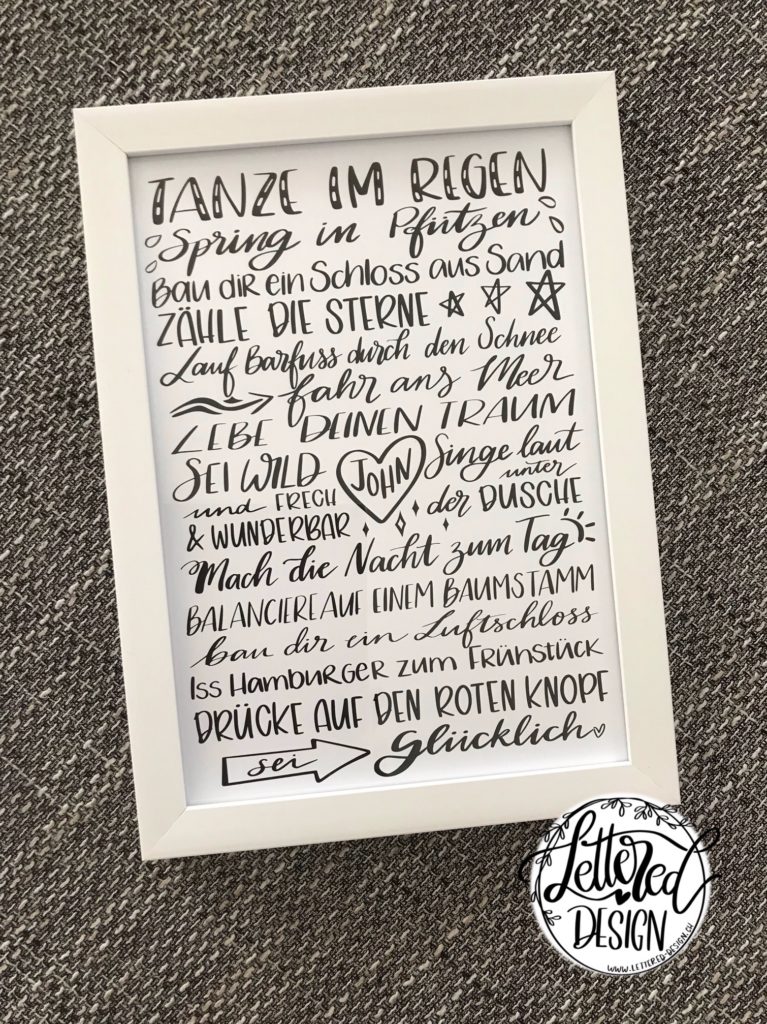 TANZE IM REGEN
Spring in Pfützen
Bau dir ein Schloss aus Sand
ZÄHLE DIE STERNE
Lauf Barfuss durch den Schnee
fahr ans Meer
LEBE DEINEN TRAUM
SEI WILD
und FRECH
& WUNDERBAR
JOHN
Singe laut
unter
der DUSCHE
Mach die Nacht zum Tag
BALANCIERE AUF EINEM BAUMSTAMM
bau dir ein Luftschloss
Iss Hamburger zum Frühstück
DRÜCKE AUF DEN ROTEN KNOPF
sei glücklich
Lettered
DESIGN
WWW.LETTERED-DESIGN.CH